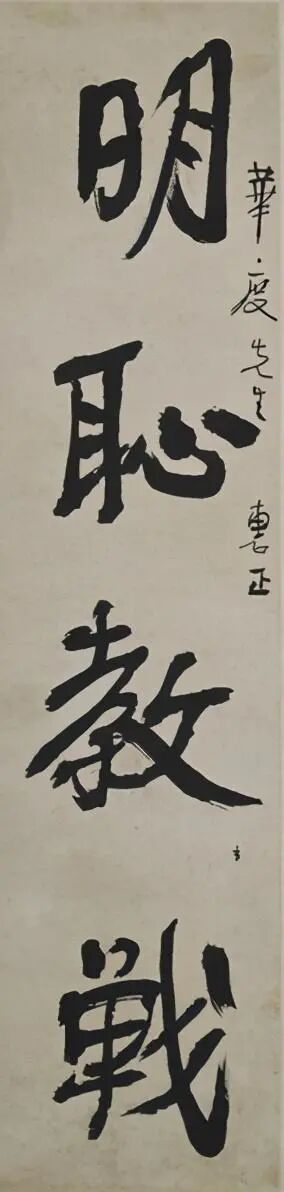 華度先生 惠正
明恥教戰